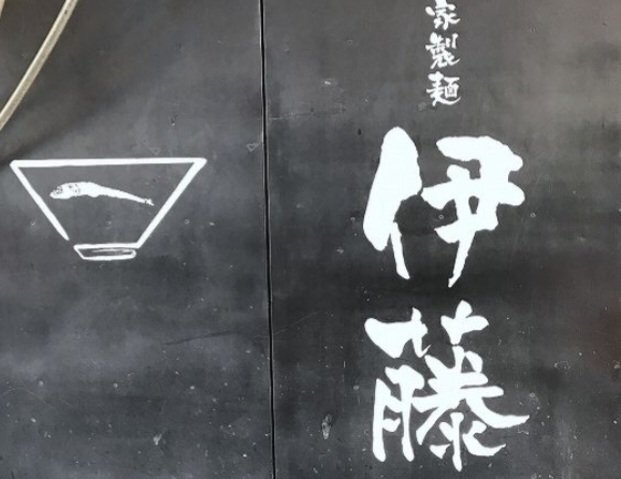 家製麺
伊藤